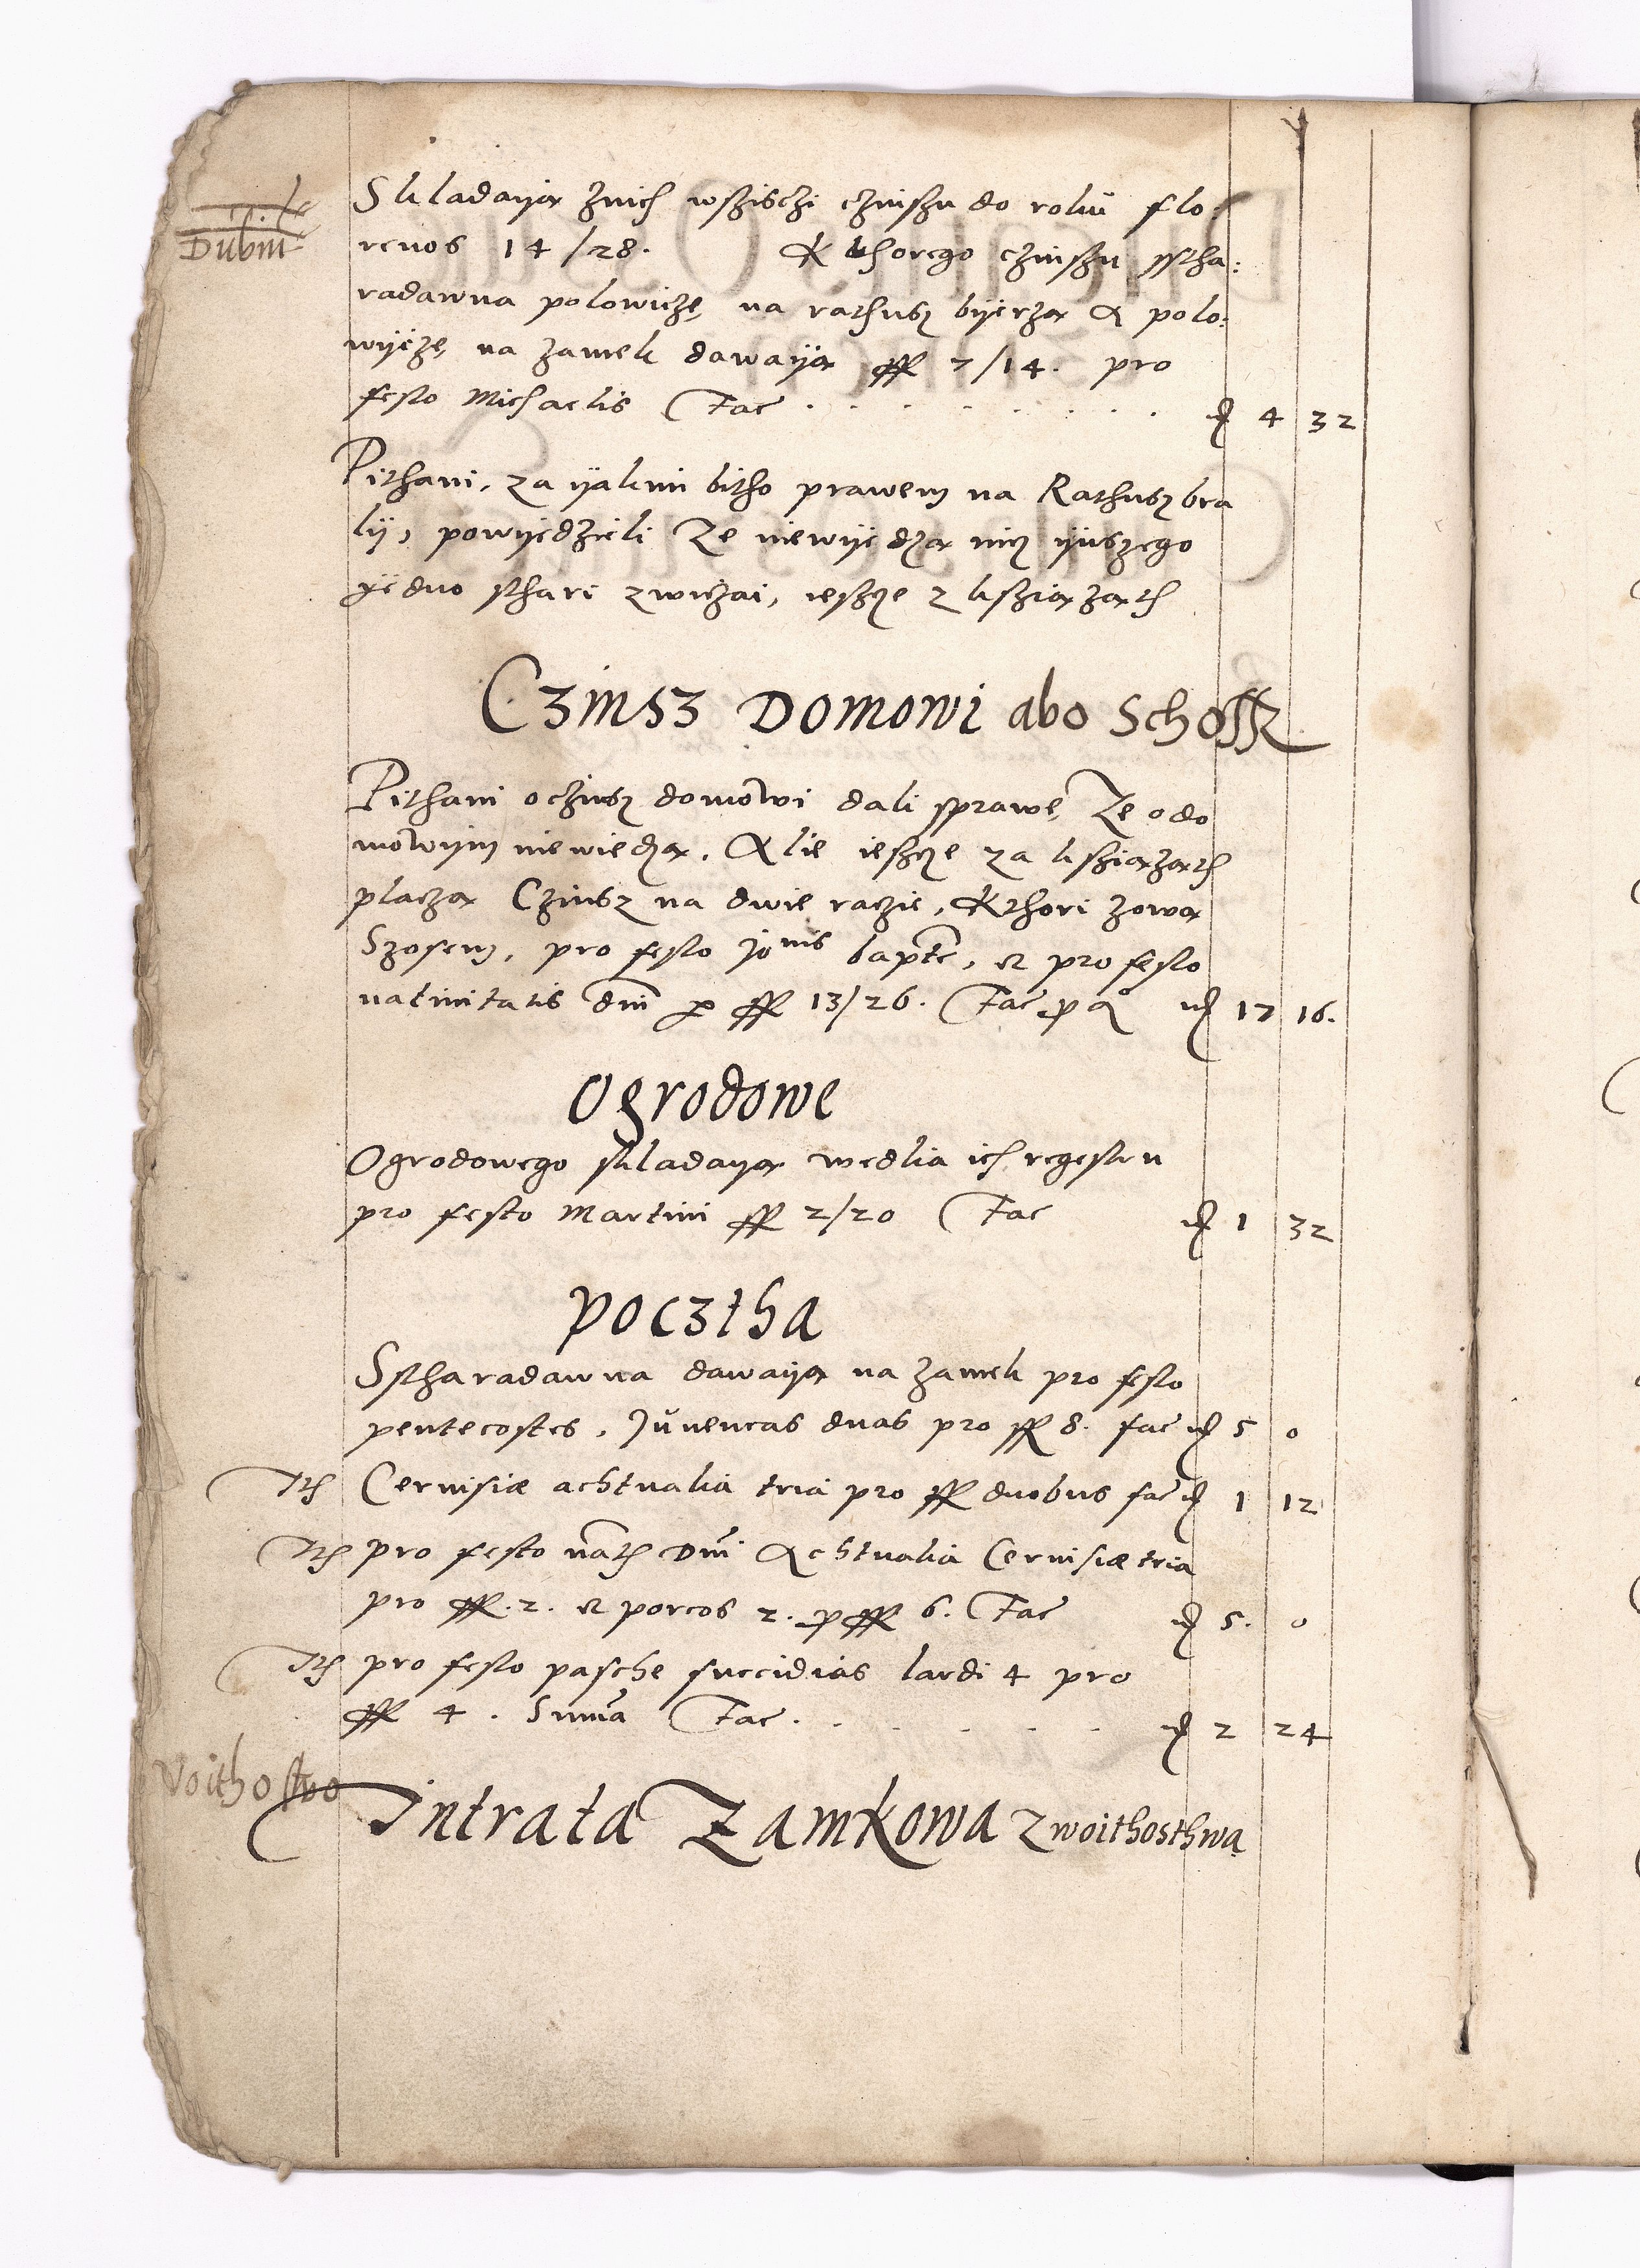 Dubin
Skladayą znich wszisczi czinszu do roku flo:
renos 14/28. Kthorego czinszu sstha:
radawna polowiczę, na rathusz byerzą A polo:
wyczę, na zamek dawayą ff 7/14. pro
festo Michaelis Fac . . . . . . . . . 4 32
Pithani, za yakim bitho prawem na Rathusz bra
ly, powyedzieli Ze niewyedzą nicz ynszego
yedno sthari zwiczai, iescze z kxziąząth
Czinsz Domowi abo Schossz
Pithani o czinsz domowi dali sprawę, Ze o do
mowym niewiedzą, Alie iescze za kxziąząth
placzą Czinsz na dwie raczie, Kthori zową
Szosem, pro festo Jonis bapte, et pro festo
natiuitatis dni p ff 13/26. Fac p a 17 16.
Ogrodowe
Ogrodowego skladayą wedlia ich regestru
pro festo Martini ff 2/20 Fac 1 32
Pocztha
Sstharadawna dawayą na zamek pro festo
pentecostes, Juuencas duas pro ff 8. fac 5 0
Ith Ceruisiæ achtualia tria pro ff duobus fac 1 12
Ith pro festo nath Dni Achtualia Ceruisiæ tria
pro ff. 2. et porcos 2. p ff 6. Fac 5. 0
Ith pro festo pasche succidias lardi 4 pro
ff 4. Suma Fac . . . . . . 2 24
Voithostwo
Intrata Zamkowa z woithosthwa